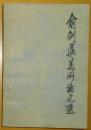 俞剑华美术论文选